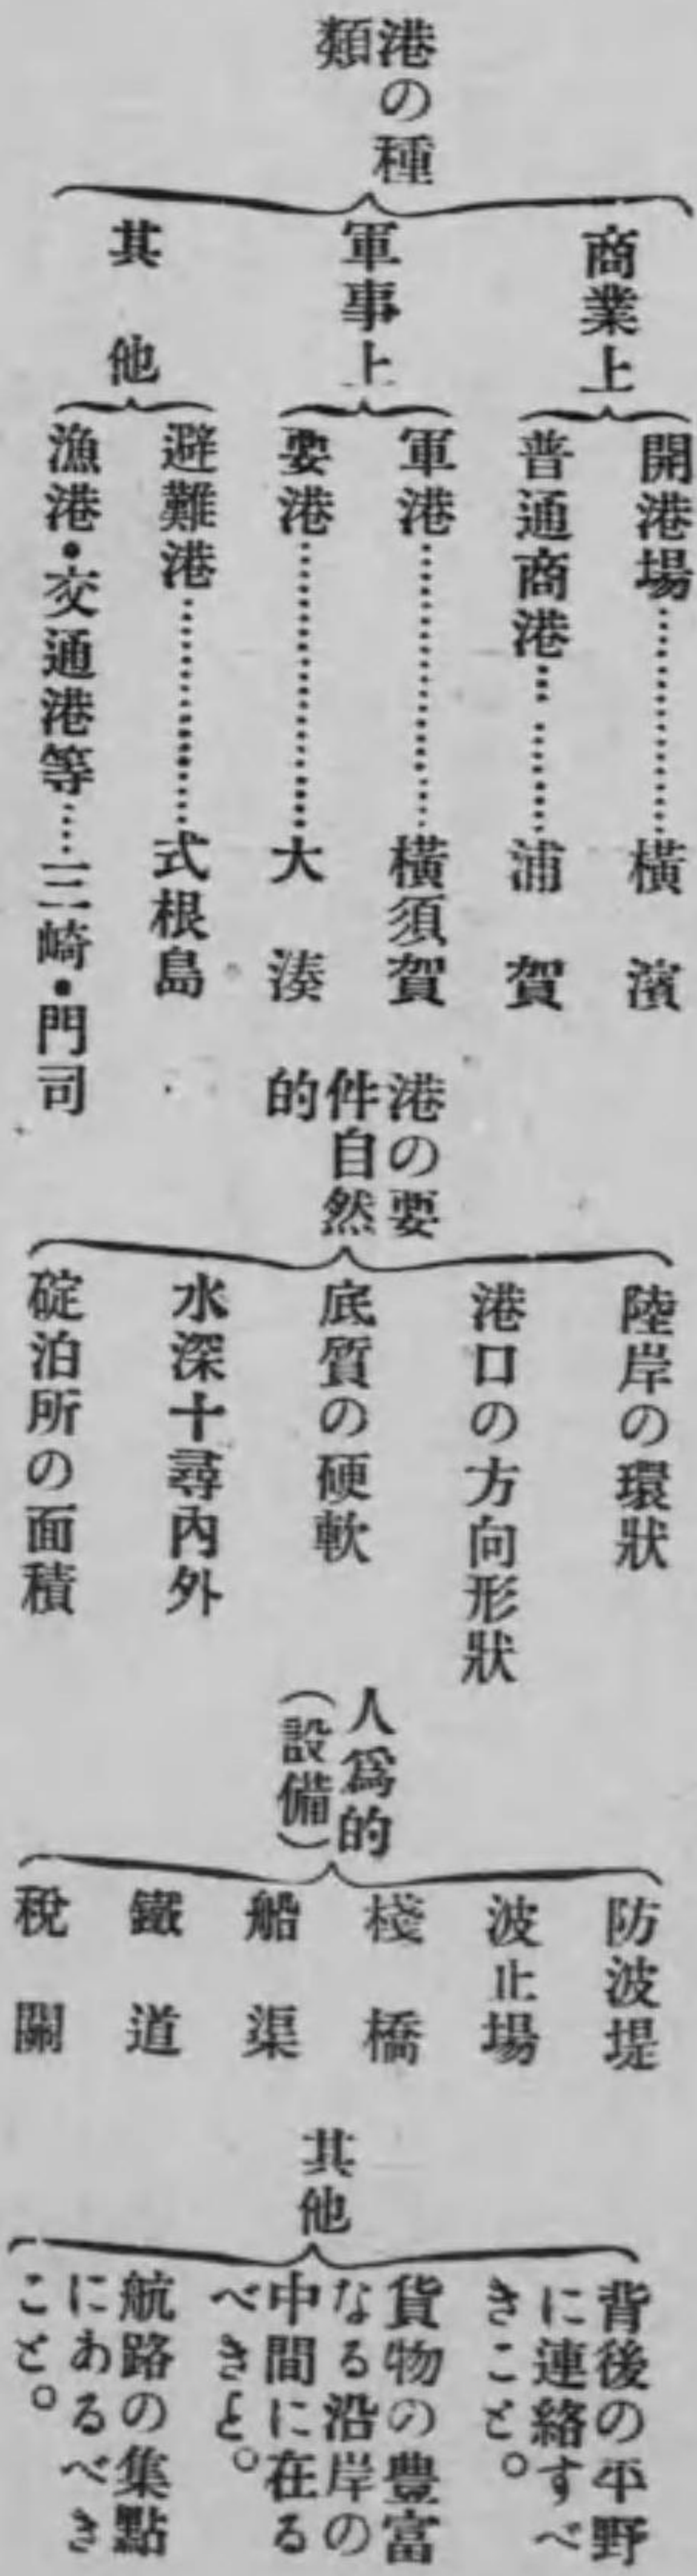 港の種
類
商業上
開港場…………橫濱
普通商港………浦賀
軍事上
軍港…………橫須賀
要港…………大湊
其他
避難港…………式根島
漁港・交通港等……三崎・門司
港の要
件自然
的
陸岸の環狀
港口の方向形狀
底質の硬軟
水深十尋內外
碇泊所の面積
人爲的
(設備)
防波堤
波止場
棧橋
船渠
鐵道
稅關
其他
背後の平野
に連絡すべ
きこと。
貨物の豊富
なる沿岸の
中間に在る
べきと。
航路の集點
にあるべき
こと。